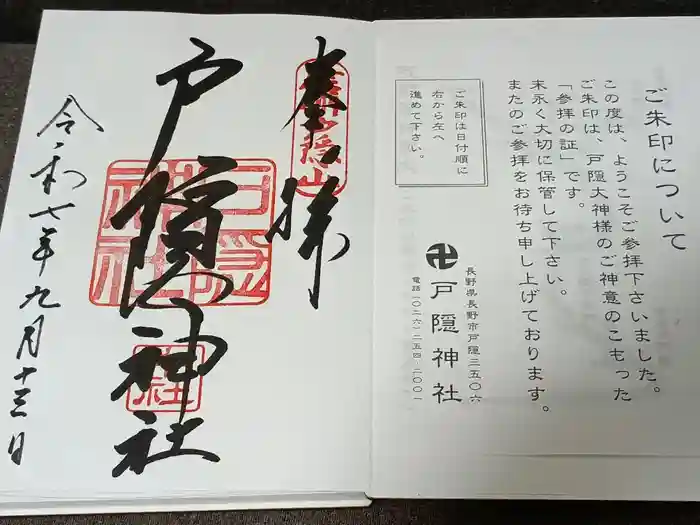 ご朱印について
この度は、ようこそご参拝下さいました。
ご朱印は、戸隠大神様のご神意のこもった
「参拝の証」です。
末永く大切に保管して下さい。
またのご参拝をお待ち申し上げております。
ご朱印は日付順に
右から左へ
進めて下さい。
長野県長野市戸隠三五〇六
卍戸隠神社
電話〇二六-二五四-二〇〇一
奉拝
戸隠神社
令和七年九月十三日
戸隠
神社